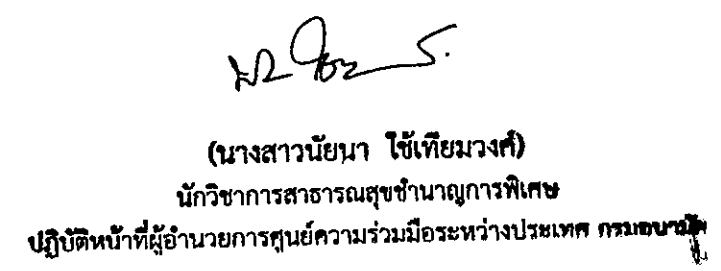 (นางสาวนัยนา ใช้เทียมวงศ์)
นักวิชาการสาธารณสุขชำนาญการพิเศษ
ปฏิบัติหน้าที่ผู้อำนวยการศูนย์ความร่วมมือระหว่างประเทศ กรมอนามัย